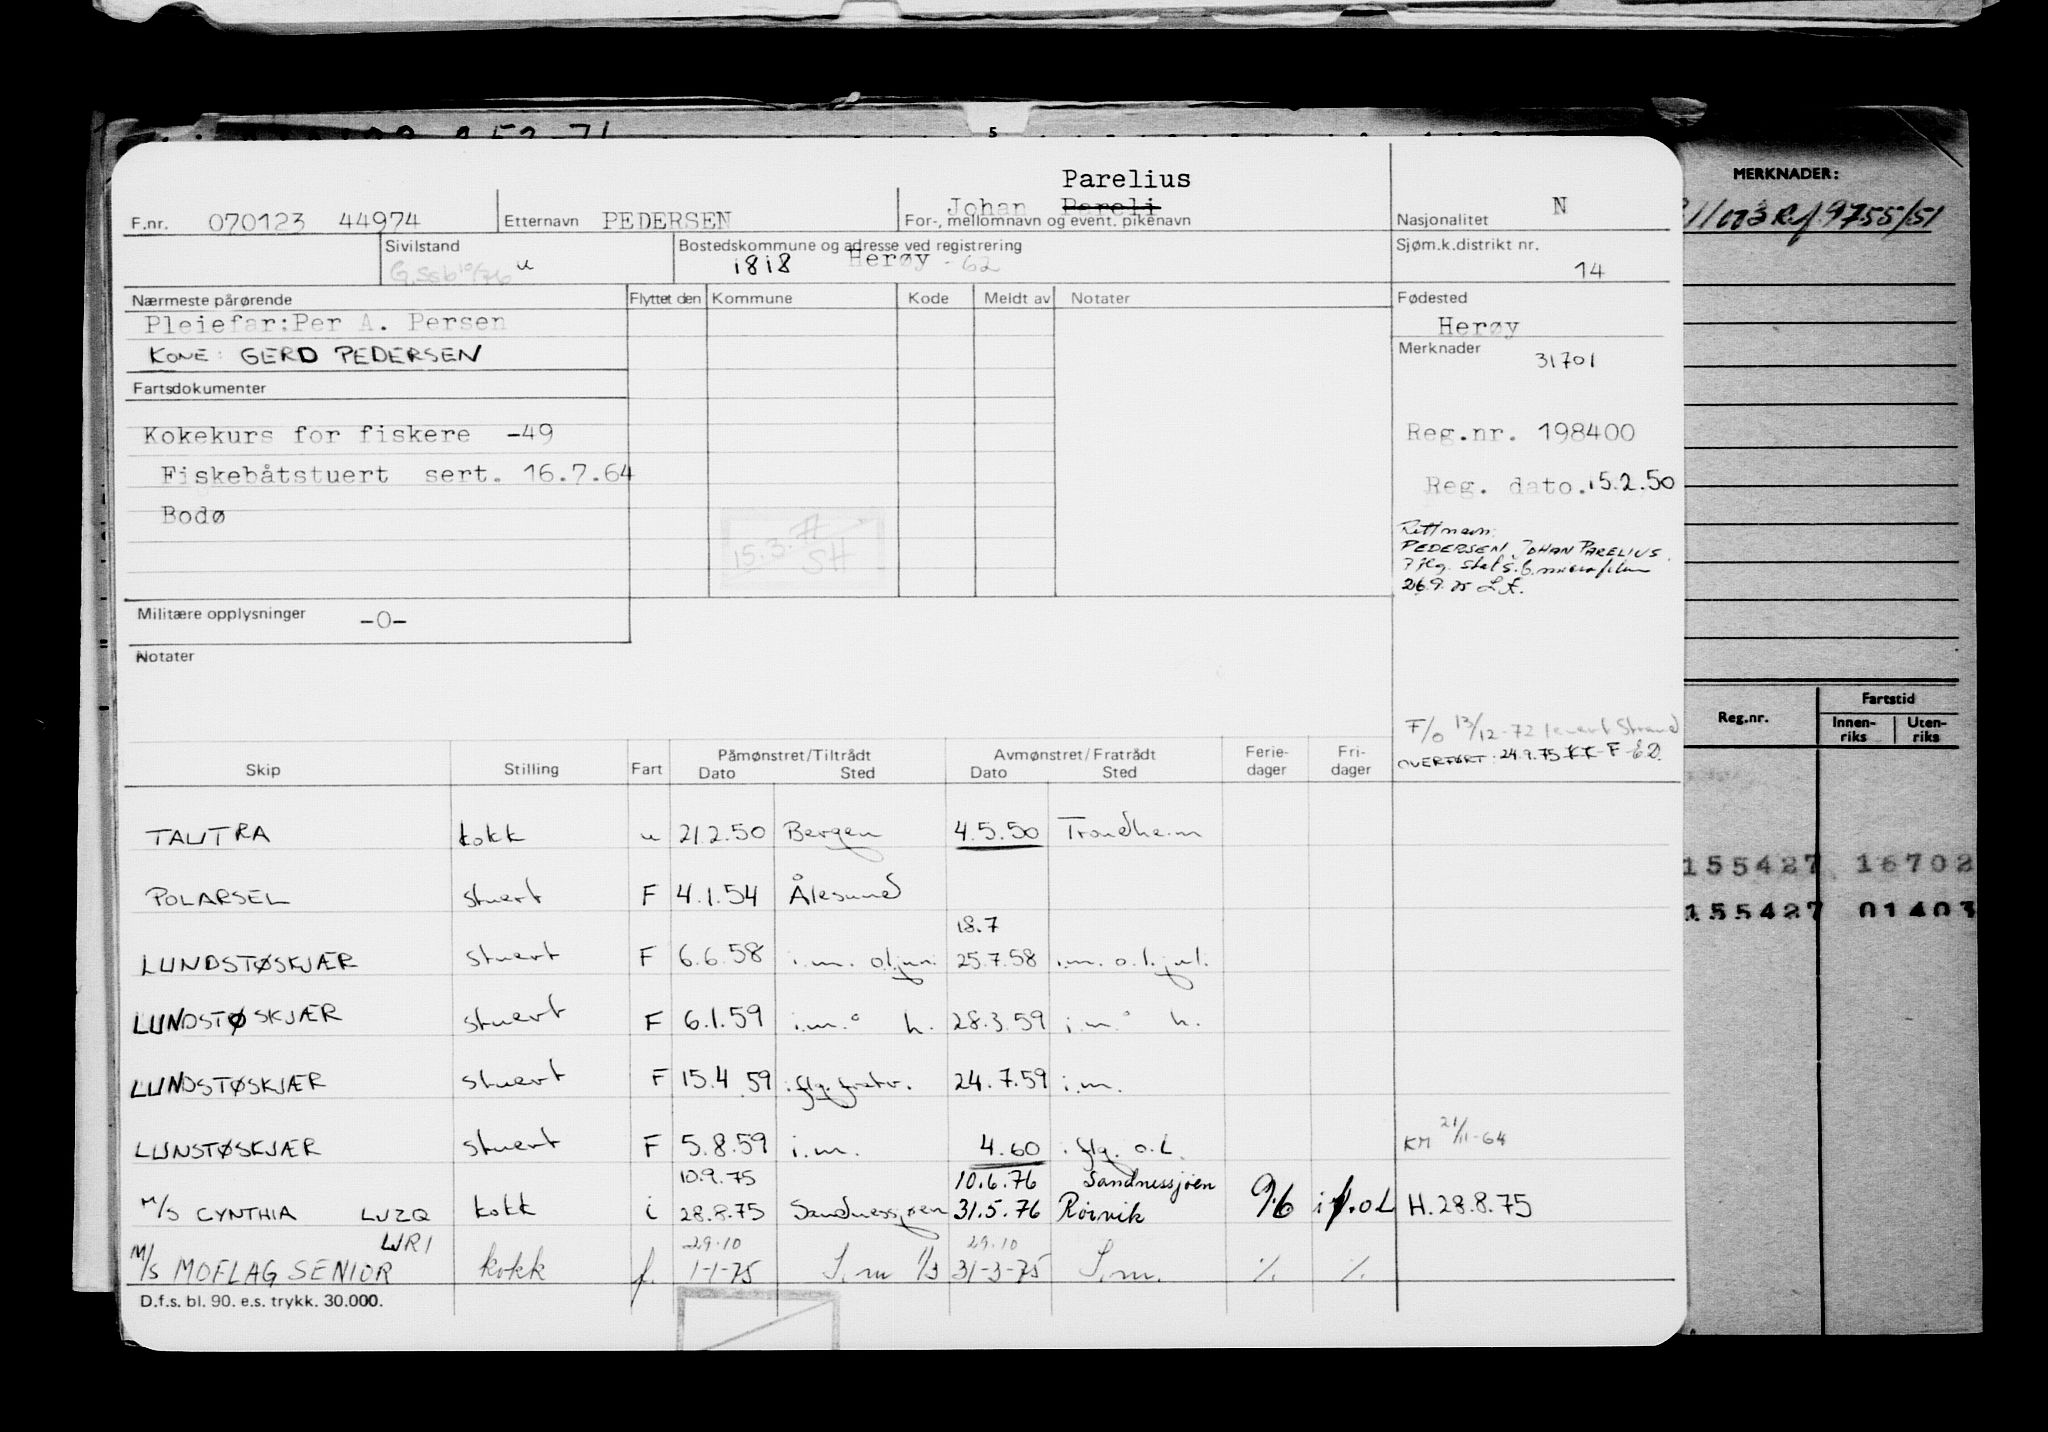 5
Parelius
F.nr. 070123 44974 Etternavn PEDERSEN Johan Pareli
For-, mellomnavn og event. pikenavn
Nasjonalitet N
Sivilstand u
Bostedskommune og adresse ved registrering
1818 Herøy - 62
Sjøm.k.distrikt nr.
14
Nærmeste pårørende
Flyttet den Kommune Kode Meldt av Notater
Fødested
Pleiefar:Per A. Persen
Herøy
KONE: GERD PEDERSEN
Merknader 31701
Fartsdokumenter
Kokekurs for fiskere -49
Reg.nr. 198400
Fiskebåtstuert sert. 16.7.64
Reg. dato. 15.2.50
Bodø
15.3.77
SH
Rett navn:
PEDERSEN, JOHAN PARELIUS.
26.9.75
Militære opplysninger -0-
Notater
F/O 13/12-72 levert Strand
OVERFØRT: 24.9.75 KK-F-E.D.
Skip Stilling Fart Påmønstret/Tiltrådt Dato Sted Avmønstret/Fratrådt Dato Sted Ferie-dager Fri-dager
TAUTRA kokk u 21.2.50 Bergen 4.5.50 Trondheim
POLARSEL stuert F 4.1.54 Ålesund
18.7
LUNDSTØSKJÆR stuert F 6.6.58 i.m. o.l. juni 25.7.58 i.m. o.l. juli
LUNDSTØSKJÆR stuert F 6.1.59 i.m. h. 28.3.59 i.m. h.
LUNDSTØSKJÆR stuert F 15.4.59 i flg. fratr. 24.7.59 i.m.
LUNSTØSKJÆR stuert F 5.8.59 i.m. 4.60 i flg. o.l. KM 21/11-64
10.9.75 10.6.76 Sandnessjøen
M/S CYNTHIA LUZQ kokk i 28.8.75 Sandnessjøen 31.5.76 Rörvik 96 H.28.8.75
LJRI 29.10 29.10
M/S MOFLAG SENIOR kokk f. 1-1-75 I.m 31-3-75 I.m.
D.f.s. bl. 90. e.s. trykk. 30.000.
MERKNADER:
Ref 9755/51
Reg.nr.
Fartstid
Innen-riks Uten-riks
155427 16702
155427 01403